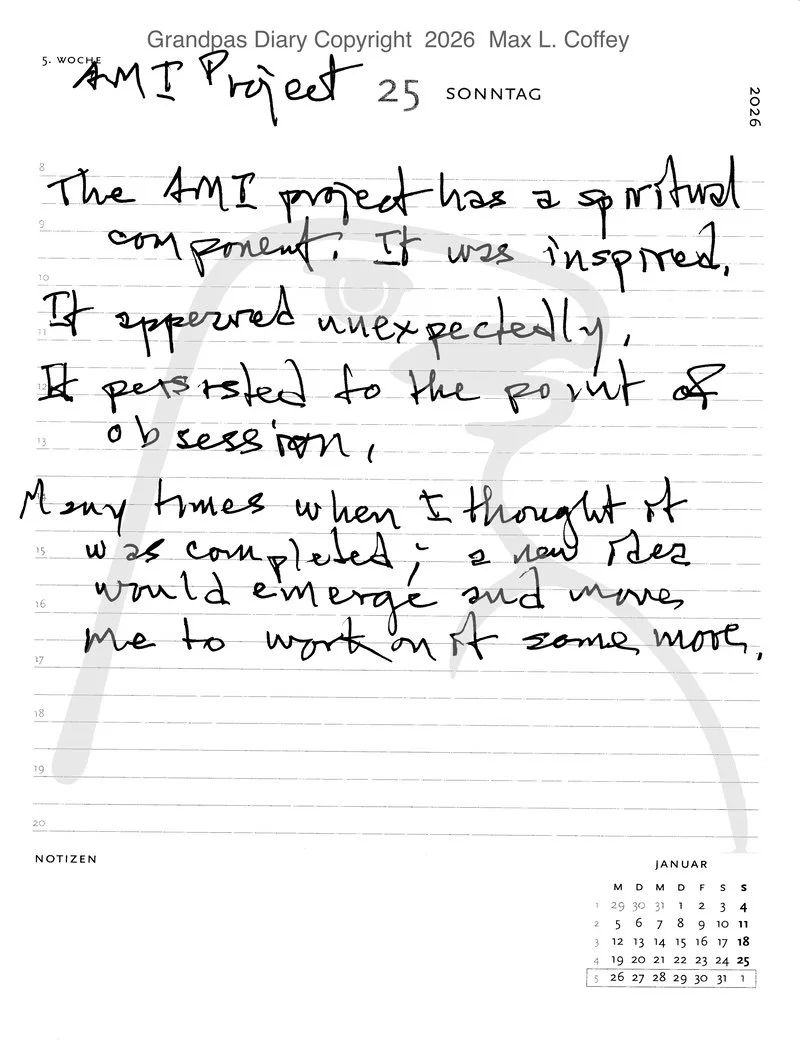 Grandpas Diary Copyright 2026 Max L. Coffey
5. WOCHE
AMI Project
25 SONNTAG
2026
8
The AMI project has a spiritual
9
component. It was inspired.
10
It appeared unexpectedly.
11
It persisted to the point of
12
obsession.
13
Many times when I thought it
was completed; a new idea
15
would emerge and move
16
me to work on it some more.
17
18
19
20
NOTIZEN
JANUAR
M D M D F S S
1 29 30 31 1 2 3 4
2 5 6 7 8 9 10 11
3 12 13 14 15 16 17 18
4 19 20 21 22 23 24 25
5 26 27 28 29 30 31 1